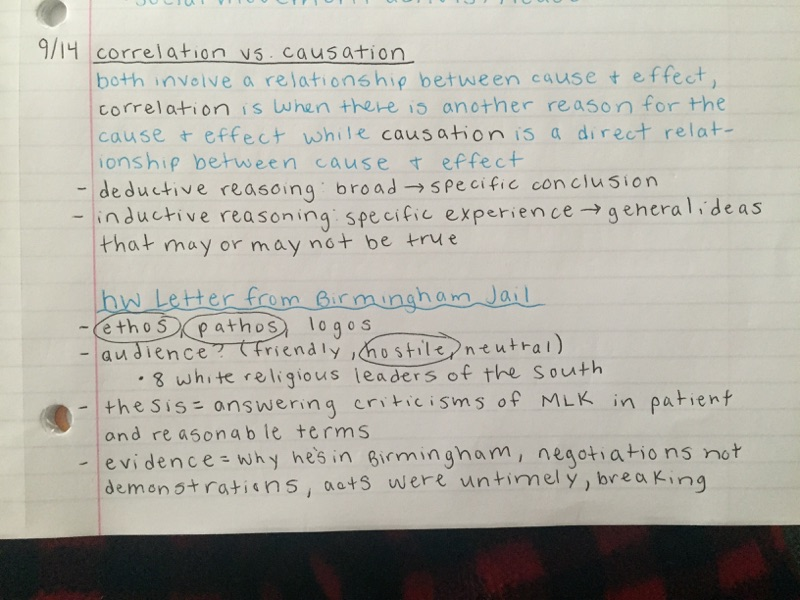 9/14 correlation vs. causation
both involve a relationship between cause + effect,
correlation is when there is another reason for the
cause + effect while causation is a direct relat-
ionship between cause + effect
- deductive reasoing: broad → specific conclusion
- inductive reasoning: specific experience → general ideas
that may or may not be true
hw Letter from Birmingham Jail
- ethos, pathos, logos
- audience? (friendly, hostile, neutral)
• 8 white religious leaders of the south
- thesis = answering criticisms of MLK in patient
and reasonable terms
- evidence = why he's in Birmingham, negotiations not
demonstrations, acts were untimely, breaking